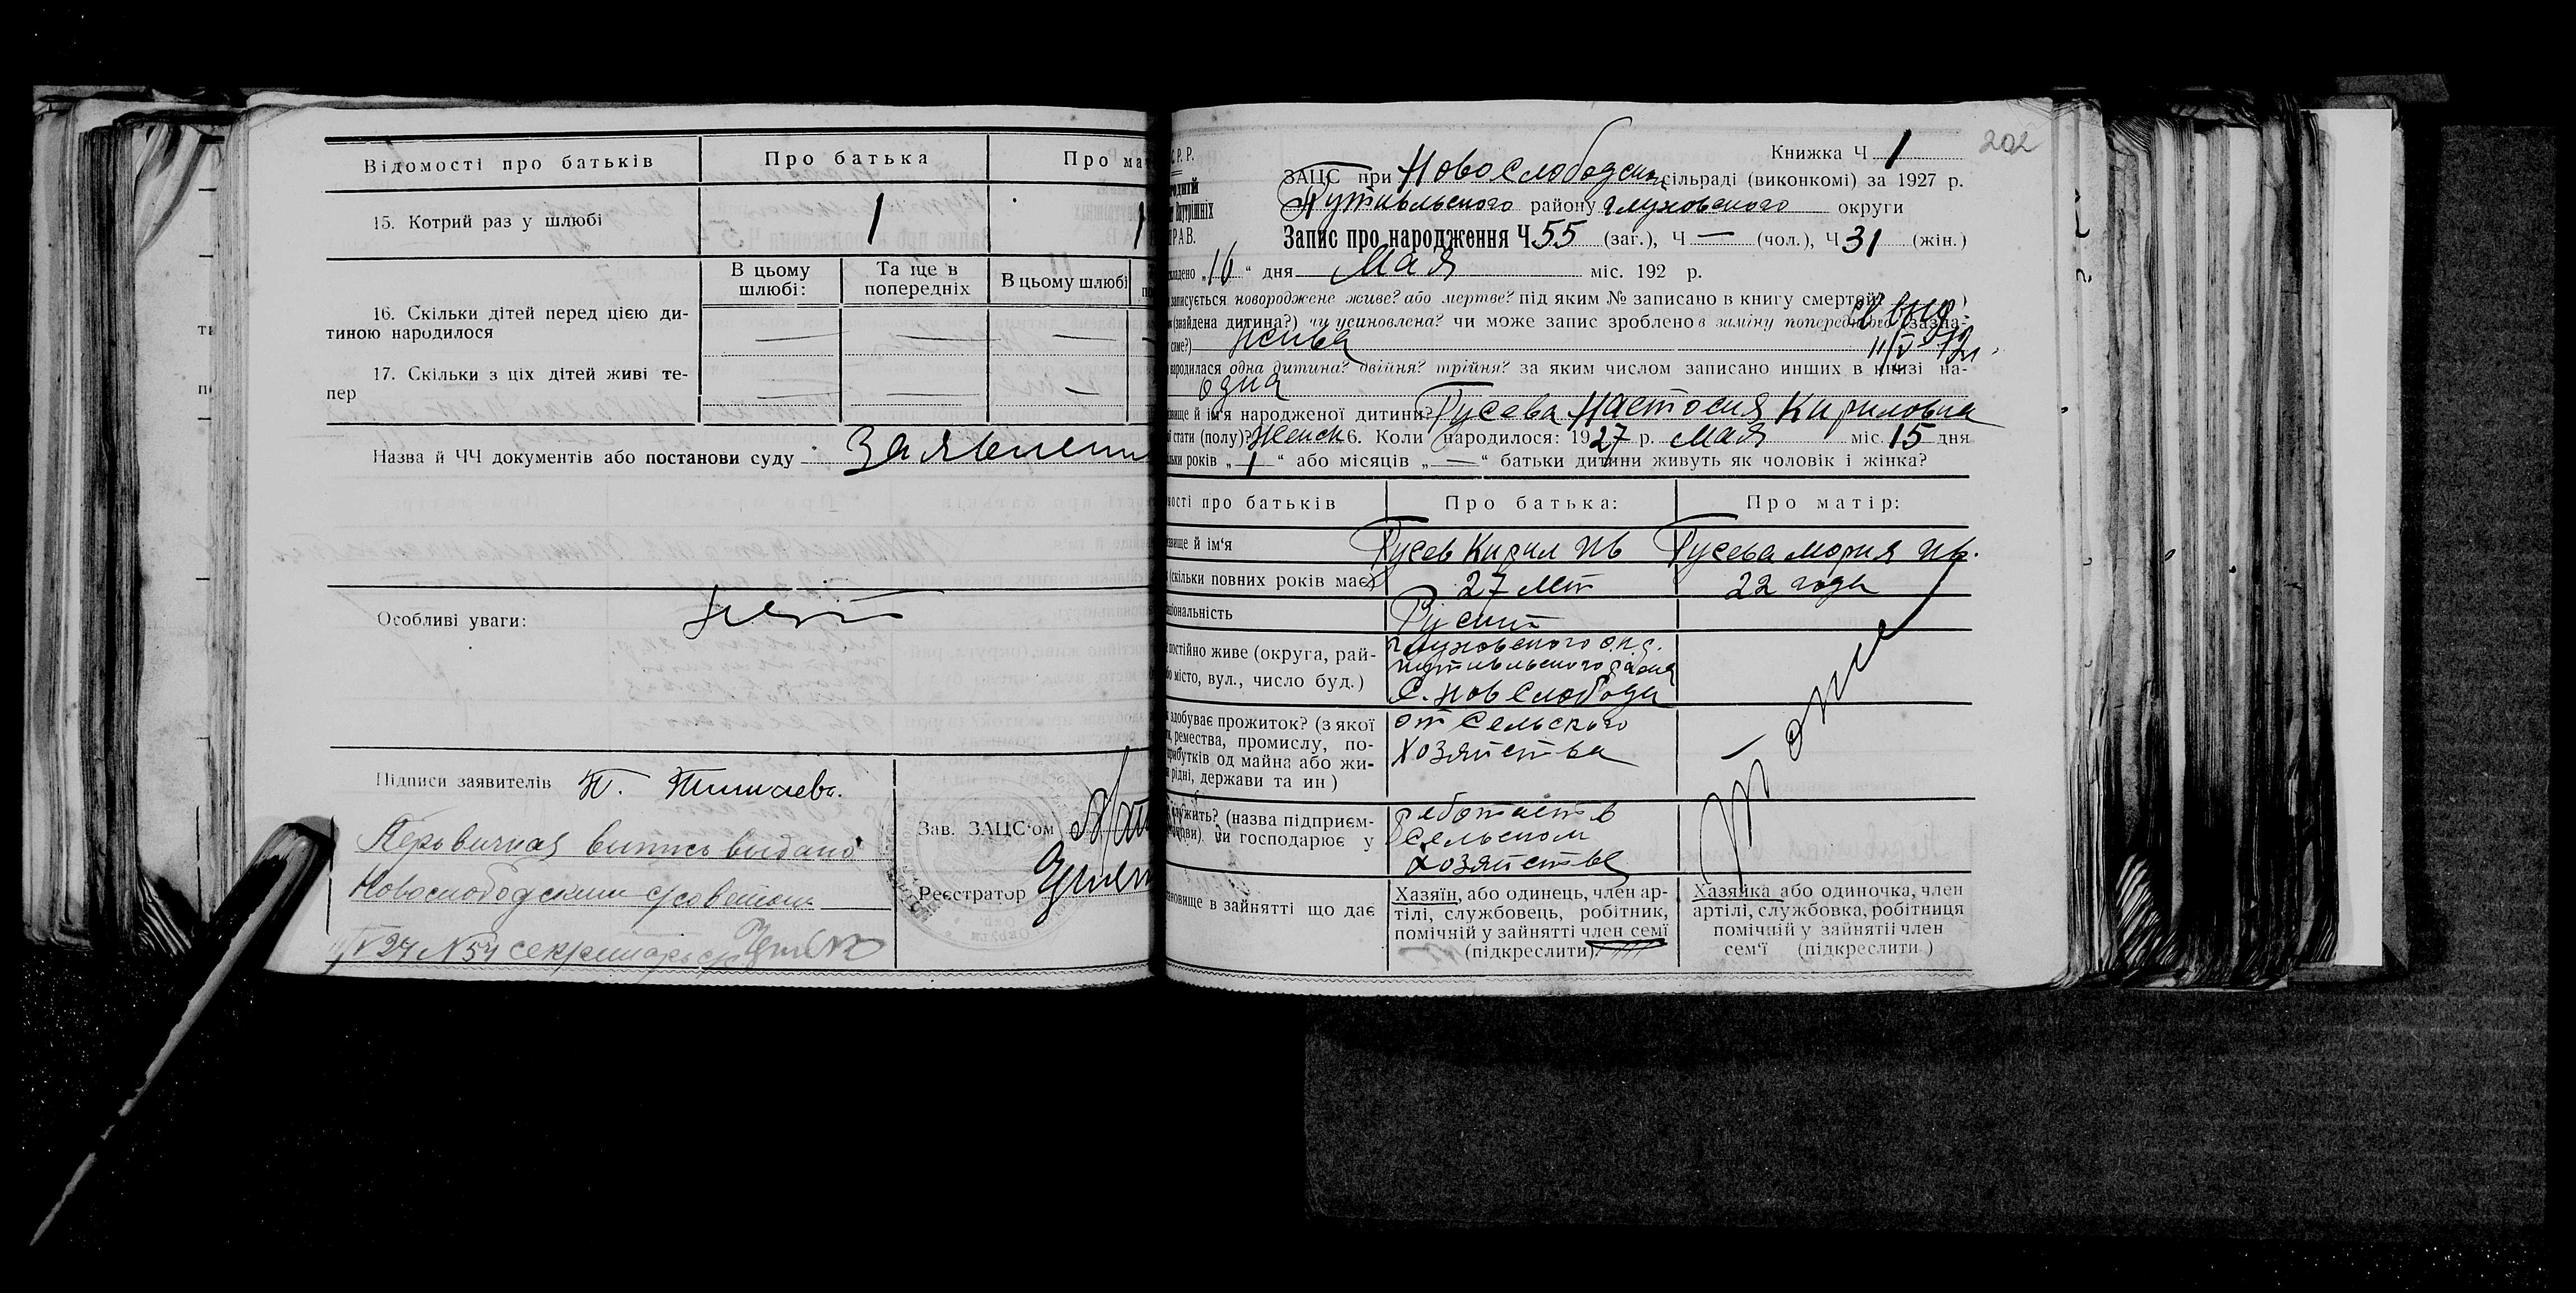 Відомості про батьків
Про батька
Про мат
15. Котрий раз у шлюбі
1
1
В цьому шлюбі:
Та ще в попередніх
В цьому шлюбі
16. Скільки дітей перед цією ди-
тиною народилося
— — —
17. Скільки з ціх дітей живі те-
пер
— — —
Назва й ЧЧ документів або постанови суду
Заявлени
Особливі уваги:
нет
Підписи заявителів
Зав. ЗАЦС'ом
Первичная выпись выдано
Новослободским с/советом
Реєстратор
V 27 N 54 секретарь
202
Книжка Ч 1
С. Р. Р.
ЗАЦС при Новослободском сільраді (виконкомі) за 1927 р.
Внутрішніх
Путивльского району Глуховского округи
РАВ.
Запис про народження Ч 55 (заг.), Ч — (чол.), Ч 31 (жін.)
ладено „16“ дня Мая міс. 192 р.
записується новороджене живе? або мертве? під яким № записано в книгу смертей? )
(знайдена дитина?) чи усиновлена? чи може запис зроблено в заміну попереднього (зазна-
саме?) Жива
народилася одна дитина? двійня? трійня? за яким числом записано инших в книзі на-
одна
вище й ім'я народженої дитини? Гусева Настосия Кириловна
стати (полу)? Женск 6. Коли народилося: 1927 р. мая міс. 15 дня
льки років „1“ або місяців „—“ батьки дитини живуть як чоловік і жінка?
мості про батьків
Про батька:
Про матір:
звище й ім'я
Гусев Кирил Ив
Гусева Мория Ив.
(скільки повних років має)
27 лет
22 года
ціональність
постійно живе (округа, рай-
бо місто, вул., число буд.)
Глуховского окр.
путивльского района
с. Нов Слобода
здобуває прожиток? (з якої
ремества, промислу, по-
рибутків од майна або жи-
рідні, держави та ин)
от сельского
хозяйства
служить? (назва підприєм-
чи господарює у
работает в
сельском
хозяйстве
ановище в зайнятті що дає
Хазяїн, або одинець, член ар-
тілі, службовець, робітник,
помічній у зайнятті член семї
(підкреслити)
Хазяйка або одиночка, член
артілі, службовка, робітниця
помічній у зайнятіі член
сем'ї (підкреслити)